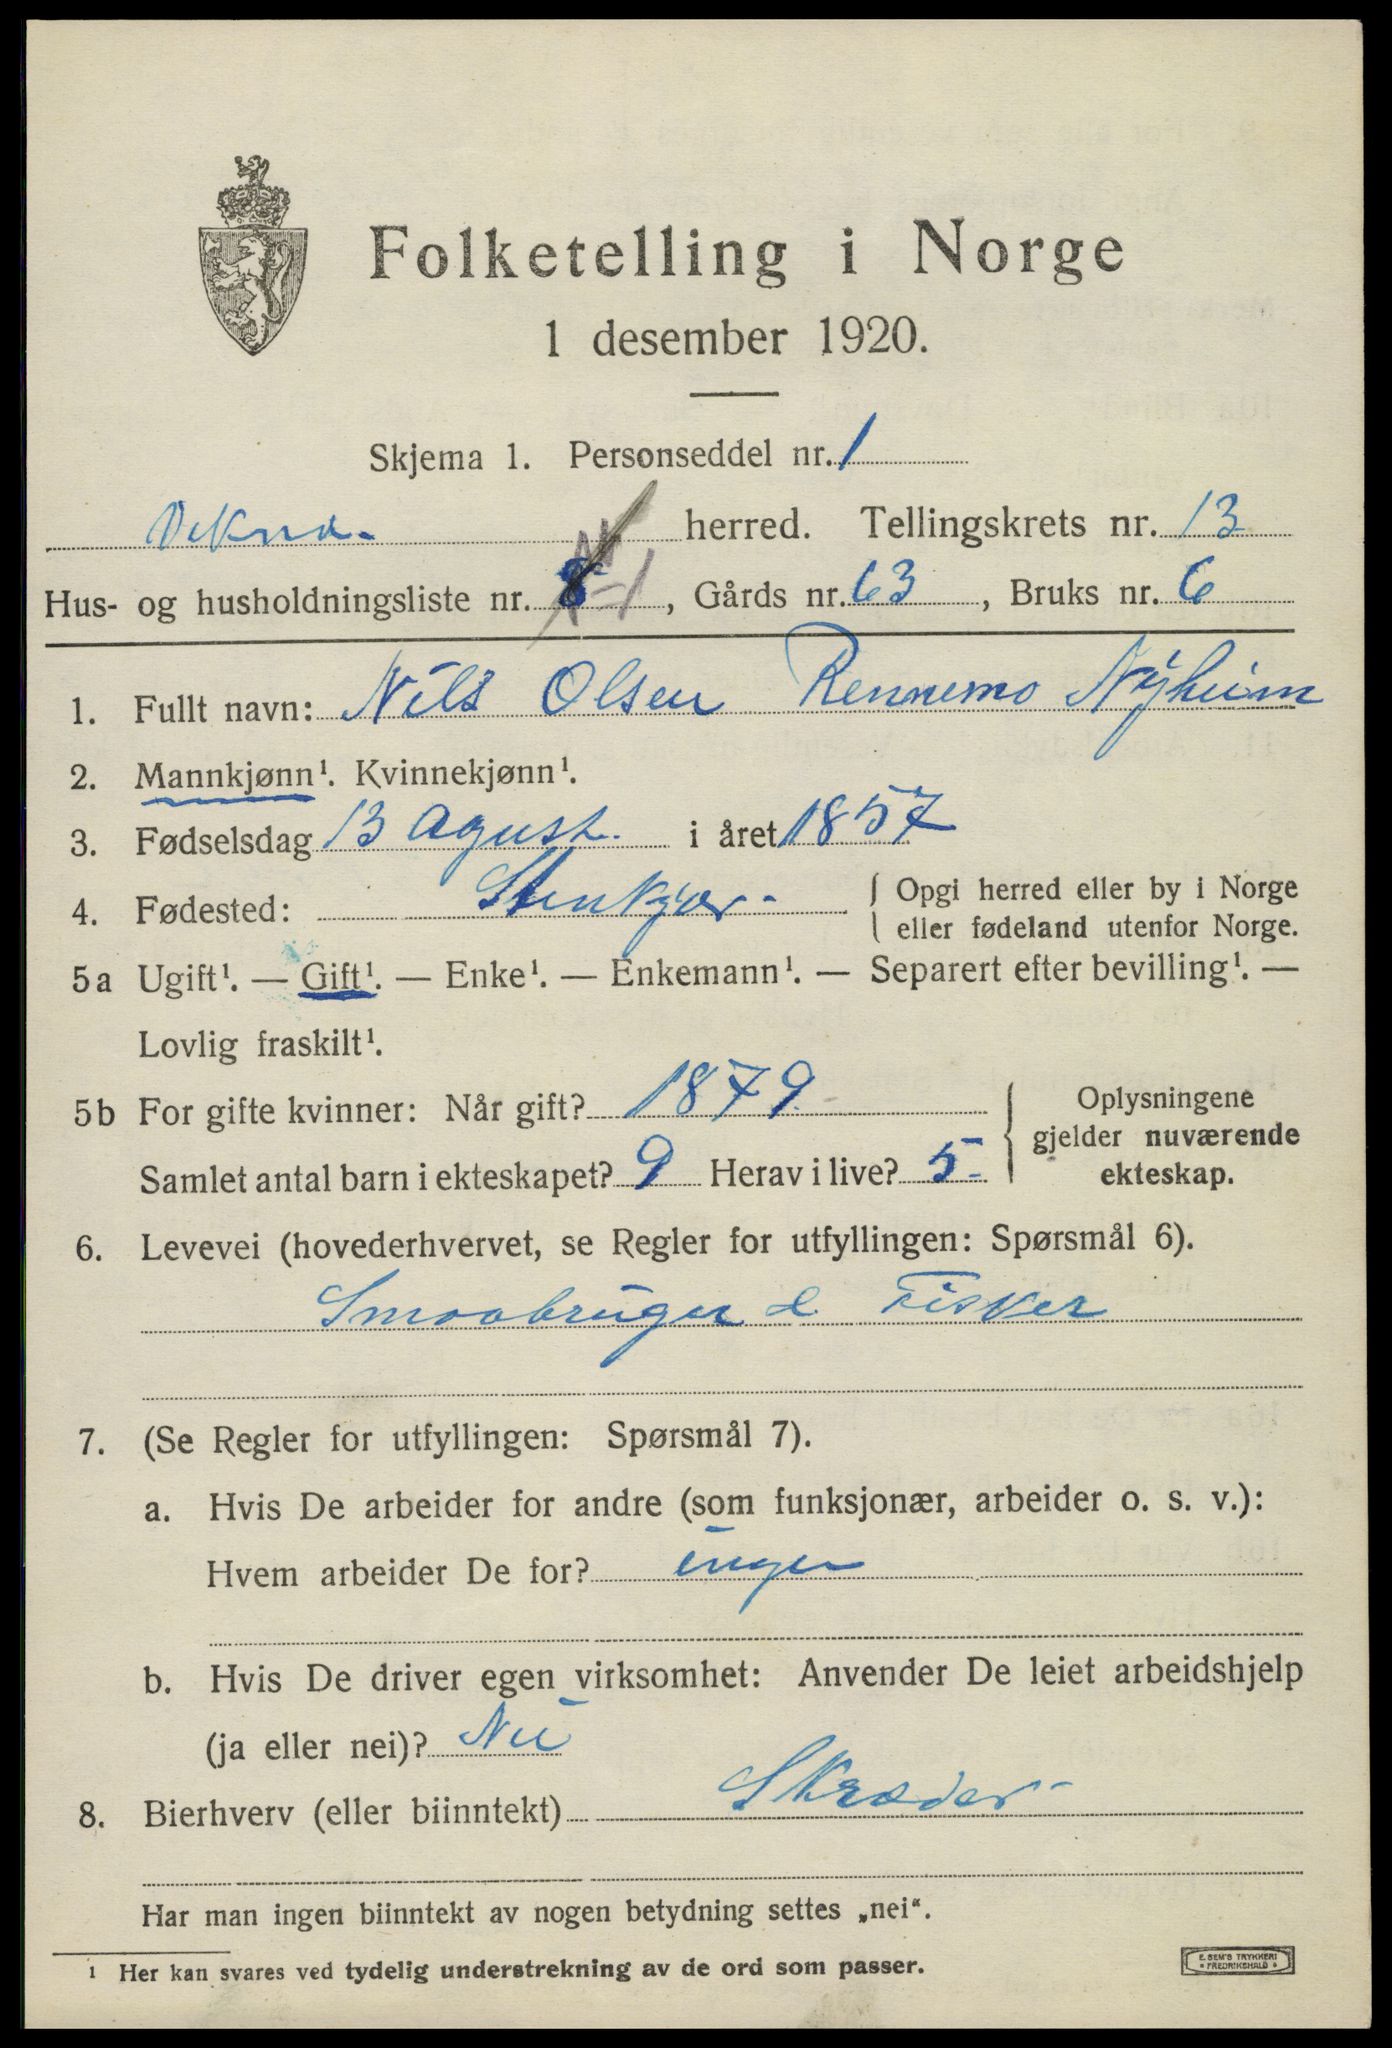 Folketelling i Norge
1 desember 1920.
Skjema 1. Personseddel nr. 1
Vikna. herred. Tellingskrets nr. 13
Hus- og husholdningsliste nr. , Gårds nr. 63, Bruks nr. 6
1. Fullt navn: Nils Olsen Rennemo Nyheim
2. Mannkjønn¹. Kvinnekjønn¹.
3. Fødselsdag 13 Agust. i året 1857
4. Fødested: Stenkjær. { Opgi herred eller by i Norge
eller fødeland utenfor Norge.
5a Ugift¹. — Gift¹. — Enke¹. — Enkemann¹. — Separert efter bevilling¹. —
Lovlig fraskilt¹.
5b For gifte kvinner: Når gift? 1879. { Oplysningene
gjelder nuværende
ekteskap.
Samlet antal barn i ekteskapet? 9 Herav i live? 5
6. Levevei (hovederhvervet, se Regler for utfyllingen: Spørsmål 6).
Smaabruger & Fisker
7. (Se Regler for utfyllingen: Spørsmål 7).
a. Hvis De arbeider for andre (som funksjonær, arbeider o. s. v.):
Hvem arbeider De for? ingen
b. Hvis De driver egen virksomhet: Anvender De leiet arbeidshjelp
(ja eller nei)? Nei
8. Bierhverv (eller biinntekt) Skræder
Har man ingen biinntekt av nogen betydning settes „nei“.
¹ Her kan svares ved tydelig understrekning av de ord som passer.
E. SEM'S TRYKKERI
FREDRIKSHALD